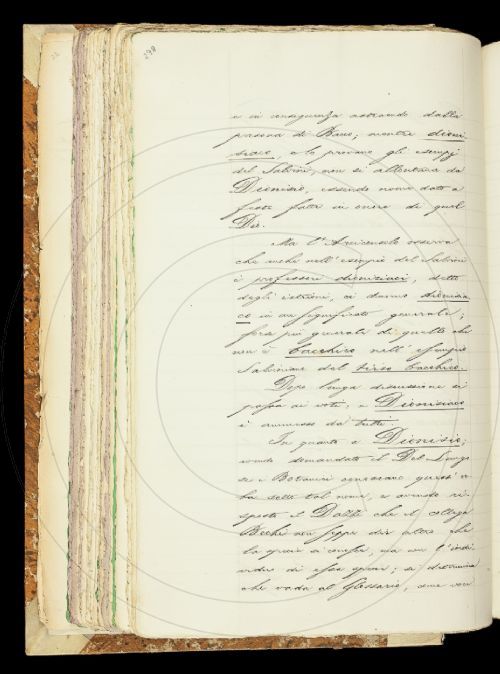 298
e in conseguenza astraendo dalla
persona di Bacco; mentre dioni-
siaco, e lo provano gli esempj
del Salvini, non si allontana da
Dionisio, essendo nome dato a
feste fatte in onore di quel
Dio.
Ma l'Arciconsolo osserva
che anche nell'esempio del Salvini
i professori dionisiaci, detto
degli istrioni, ci danno dionisia-
co in un significato generale;
forse più generale di quello che
non è bacchico nell'esempio
Salviniano del tirso bacchico.
Dopo lunga discussione si
passa ai voti, e Dionisiaco
è ammesso da tutti.
In quanto a Dionisio,
avendo domandato il Del Lungo
se i Botanici conoscano quest'er-
ba sotto tal nome, e avendo ri-
sposto il Dazzi che il collega
Bechi non seppe dir altro che
la specie si conosce, ma non l'indi-
viduo di essa specie; si determina
che vada al Glossario, come voce